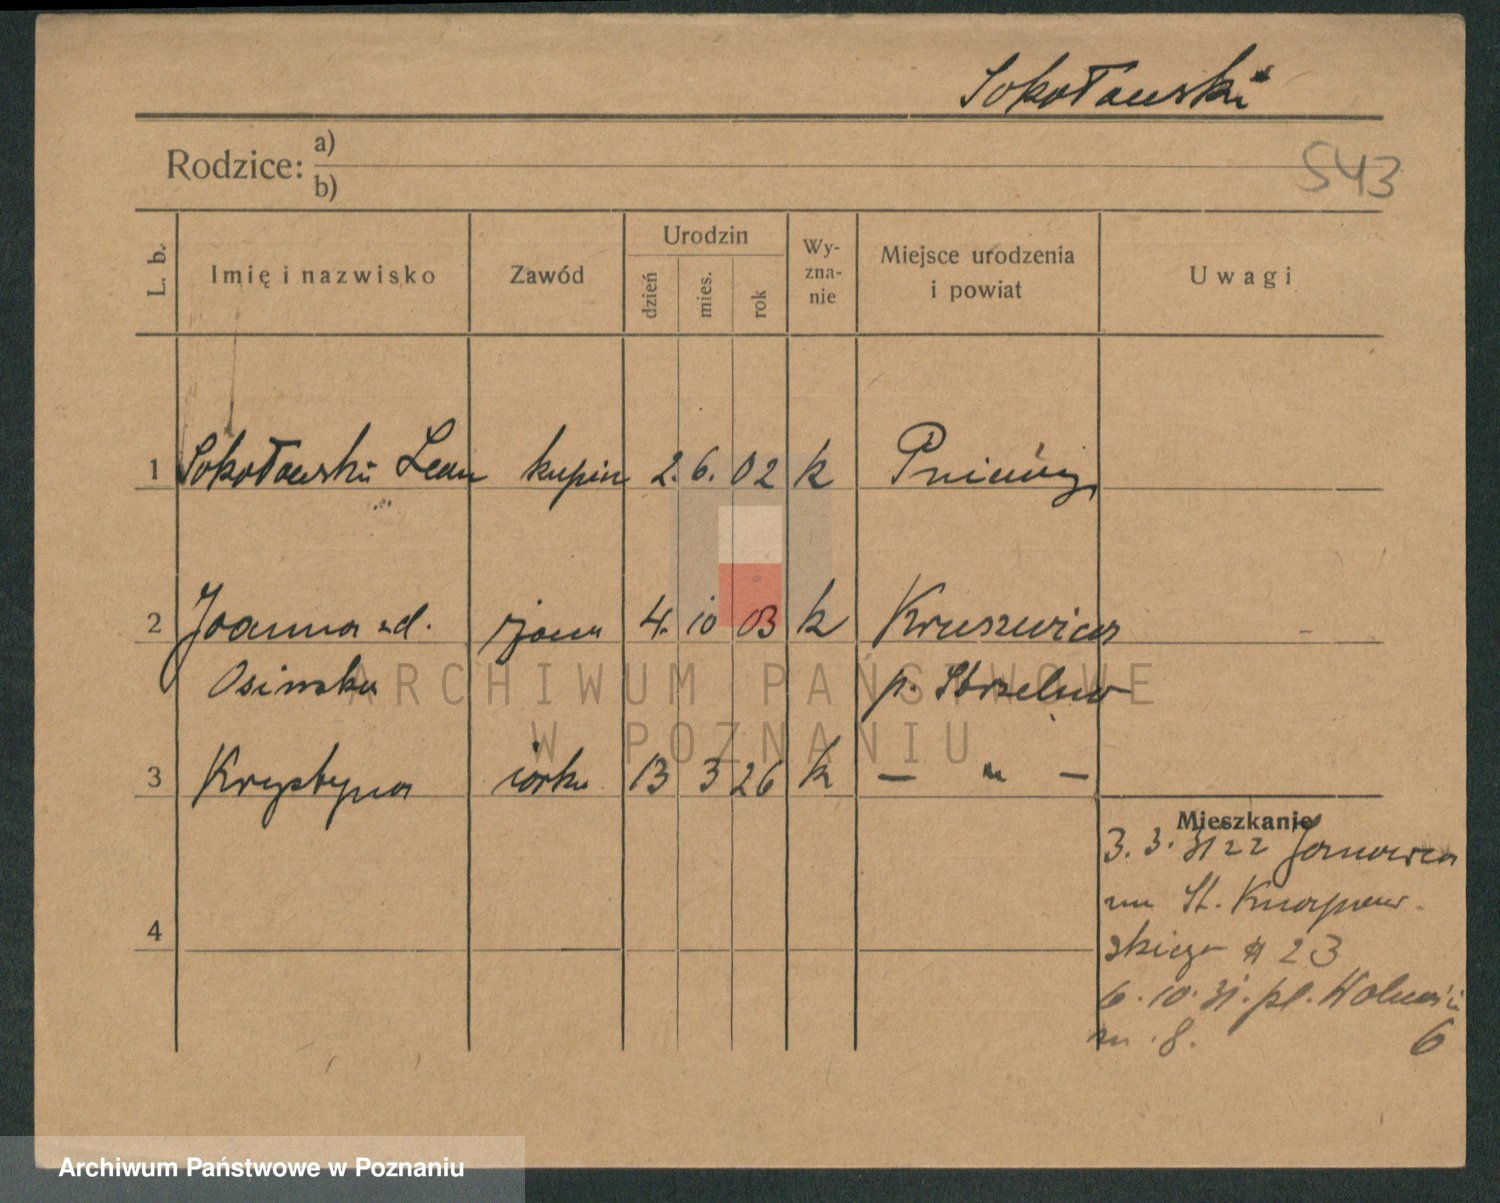 Sokołowski
Rodzice: a)
b)
543
L. b.
Imię i nazwisko
Zawód
Urodzin
dzień
mies.
rok
Wy-
zna-
nie
Miejsce urodzenia
i powiat
Uwagi
1 Sokołowski Leon kupiec 2. 6. 02 k
2 Joanna zd. żona 4. 10 03 k Kruszwica
Osinska p. Strzelno
3 Krystyna córka 13 3 26 k — " —
4
Mieszkanie
3. 3. 31 z
St.
skiego 23
6. 10. 31. pl. Wolności
m. 8. 6
ARCHIWUM PAŃSTWOWE
W POZNANIU
Archiwum Państwowe w Poznaniu